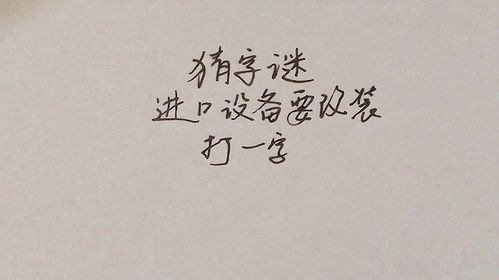 猜字谜
进口设备要改装
打一字